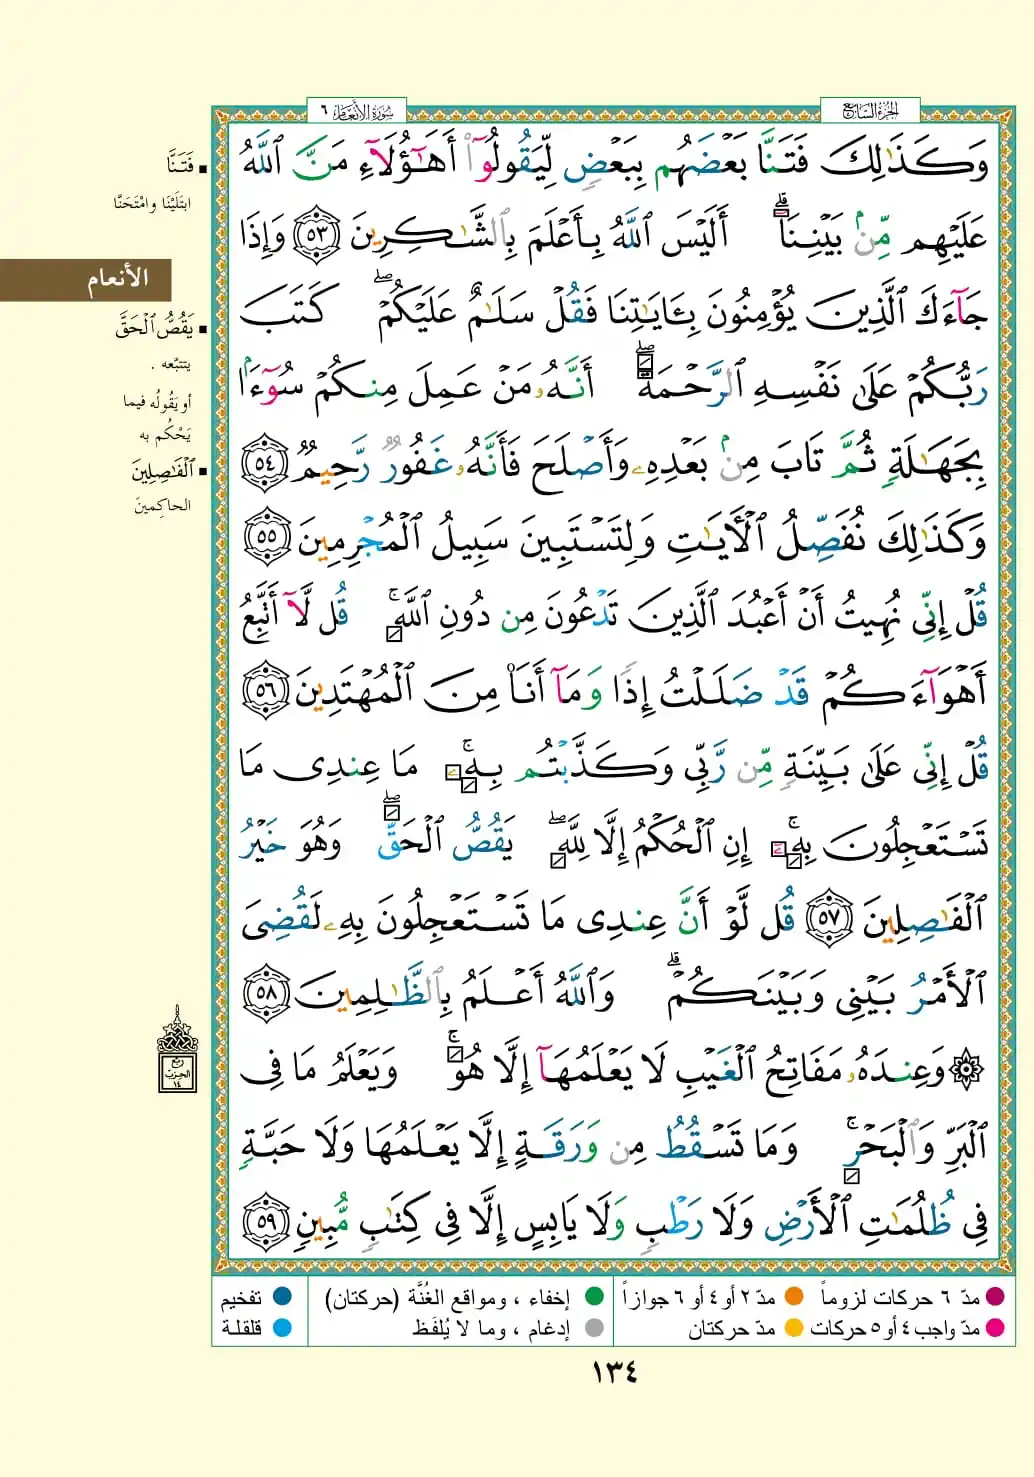 الجزء السابع
سورة الأنعام ٦
وَكَذَٰلِكَ فَتَنَّا بَعْضَهُم بِبَعْضٍ لِّيَقُولُوٓا۟ أَهَـٰٓؤُلَآءِ مَنَّ ٱللَّهُ
عَلَيْهِم مِّنۢ بَيْنِنَآ ۗ أَلَيْسَ ٱللَّهُ بِأَعْلَمَ بِٱلشَّـٰكِرِينَ ٥٣ وَإِذَا
جَآءَكَ ٱلَّذِينَ يُؤْمِنُونَ بِـَٔايَـٰتِنَا فَقُلْ سَلَـٰمٌ عَلَيْكُمْ ۖ كَتَبَ
رَبُّكُمْ عَلَىٰ نَفْسِهِ ٱلرَّحْمَةَ ۖ أَنَّهُۥ مَنْ عَمِلَ مِنكُمْ سُوٓءًۢا
بِجَهَـٰلَةٍ ثُمَّ تَابَ مِنۢ بَعْدِهِۦ وَأَصْلَحَ فَأَنَّهُۥ غَفُورٌ رَّحِيمٌ ٥٤
وَكَذَٰلِكَ نُفَصِّلُ ٱلْـَٔايَـٰتِ وَلِتَسْتَبِينَ سَبِيلُ ٱلْمُجْرِمِينَ ٥٥
قُلْ إِنِّى نُهِيتُ أَنْ أَعْبُدَ ٱلَّذِينَ تَدْعُونَ مِن دُونِ ٱللَّهِ ۚ قُل لَّآ أَتَّبِعُ
أَهْوَآءَكُمْ قَدْ ضَلَلْتُ إِذًا وَمَآ أَنَا۠ مِنَ ٱلْمُهْتَدِينَ ٥٦
قُلْ إِنِّى عَلَىٰ بَيِّنَةٍ مِّن رَّبِّى وَكَذَّبْتُم بِهِۦ ۚ مَا عِندِى مَا
تَسْتَعْجِلُونَ بِهِۦٓ ۚ إِنِ ٱلْحُكْمُ إِلَّا لِلَّهِ ۖ يَقُصُّ ٱلْحَقَّ ۖ وَهُوَ خَيْرُ
ٱلْفَـٰصِلِينَ ٥٧ قُل لَّوْ أَنَّ عِندِى مَا تَسْتَعْجِلُونَ بِهِۦ لَقُضِىَ
ٱلْأَمْرُ بَيْنِى وَبَيْنَكُمْ ۗ وَٱللَّهُ أَعْلَمُ بِٱلظَّـٰلِمِينَ ٥٨
۞ وَعِندَهُۥ مَفَاتِحُ ٱلْغَيْبِ لَا يَعْلَمُهَآ إِلَّا هُوَ ۚ وَيَعْلَمُ مَا فِى
ٱلْبَرِّ وَٱلْبَحْرِ ۚ وَمَا تَسْقُطُ مِن وَرَقَةٍ إِلَّا يَعْلَمُهَا وَلَا حَبَّةٍ
فِى ظُلُمَـٰتِ ٱلْأَرْضِ وَلَا رَطْبٍ وَلَا يَابِسٍ إِلَّا فِى كِتَـٰبٍ مُّبِينٍ ٥٩
فَتَنَّا
ابتَلَيْنا وامْتَحَنَّا
الأنعام
يَقُصُّ ٱلْحَقَّ
يتتبَّعه .
أو يَقُولُه فيما
يَحْكُم به
ٱلْفَـٰصِلِينَ
الحاكِمينَ
ربع
الحزب
١٤
مدّ ٦ حركات لزوماً
مدّ ٢ أو ٤ أو ٦ جوازاً
إخفاء ، ومواقع الغُنَّة (حركتان)
تفخيم
مدّ واجب ٤ أو ٥ حركات
مدّ حركتان
إدغام ، وما لا يُلفَظ
قلقلة
١٣٤